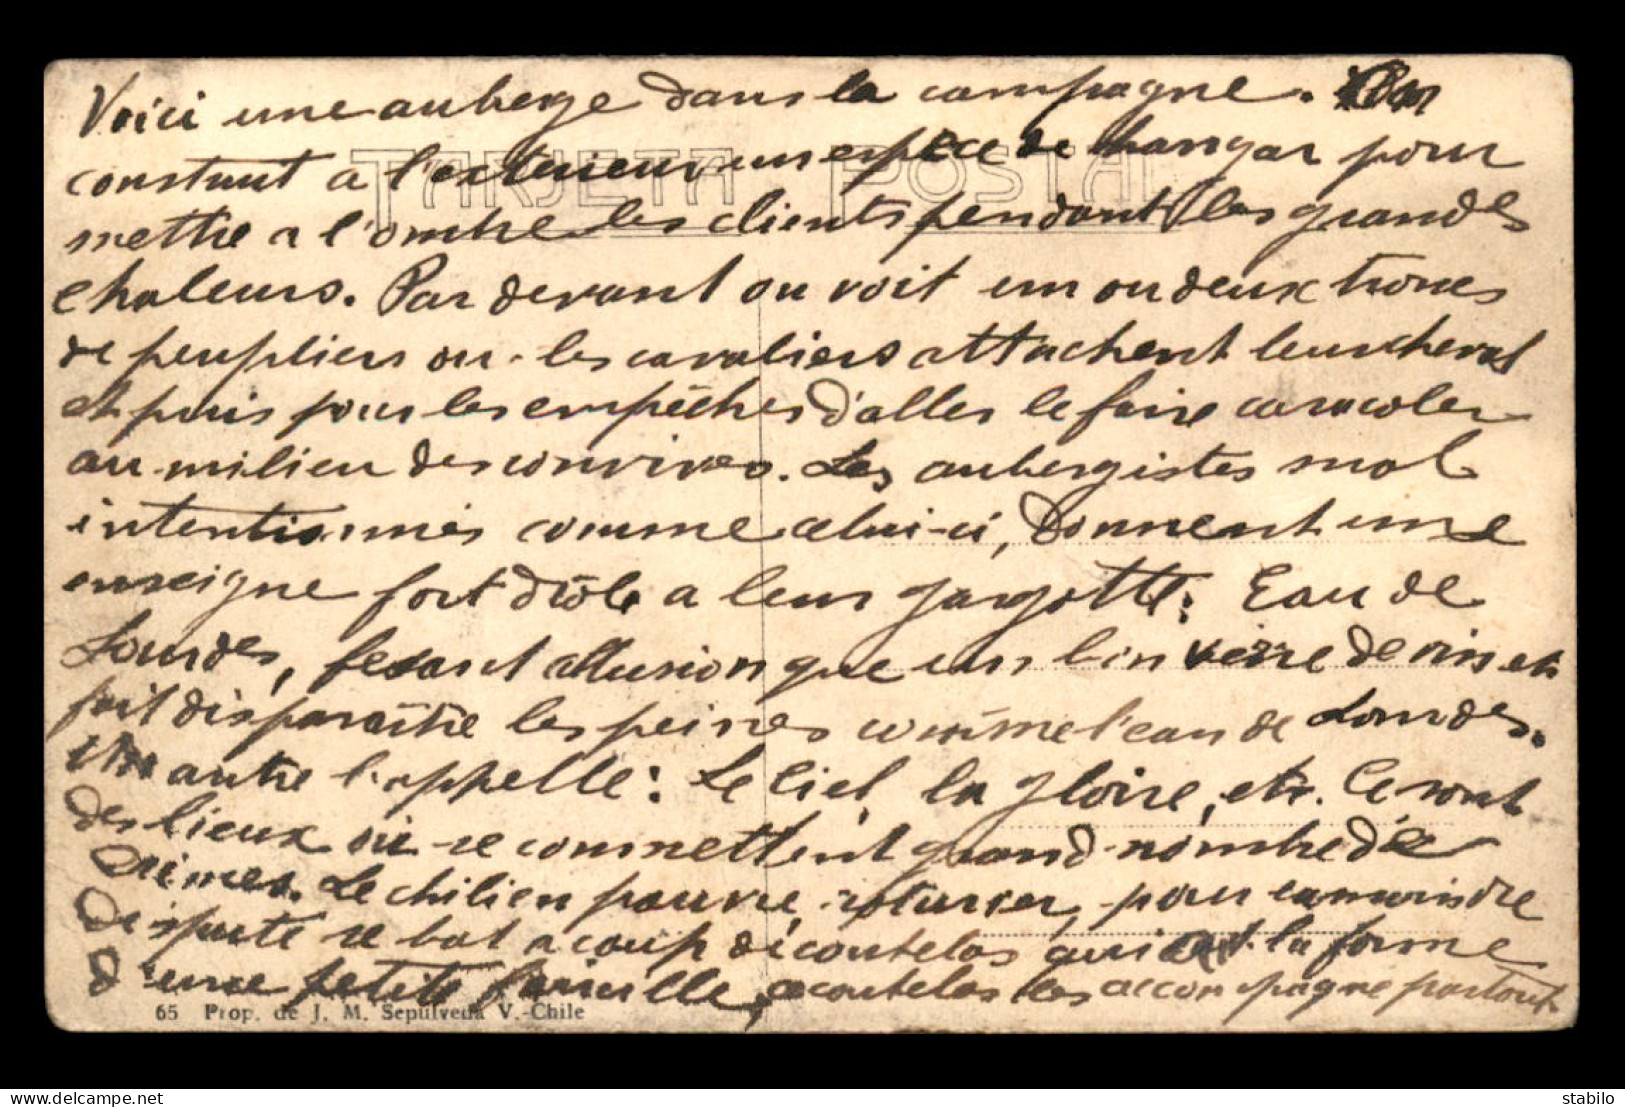 Voici une auberge dans la campagne. On
construit a l'exterieur un espece de hangar pour
TARJETA POSTAL
mettre a l'ombre les clients pendant les grandes
chaleurs. Par devant on voit un ou deux troncs
de peupliers ou les cavaliers attachent leur cheval
et puis pour les empêcher d'aller le faire caracoler
au milieu des convives. Les aubergistes mal
intentionnés comme celui-ci, donnent une
enseigne fort drôle a leur gargotte. Eau de
Lourdes, fesant allusion que un bon verre de vin
fait disparaître les peines comme l'eau de Lourdes.
Un autre l'appelle: Le Ciel, la gloire, etc. Ce sont
des lieux où se commettent grand nombre de
crimes. Le chilien pauvre, roturier, pour la moindre
dispute se bat a coup de coutelas qui ont la forme
d'une petite faucille, coutelas les accompagne partout
65 Prop. de J. M. Sepúlveda V.-Chile
stabilo